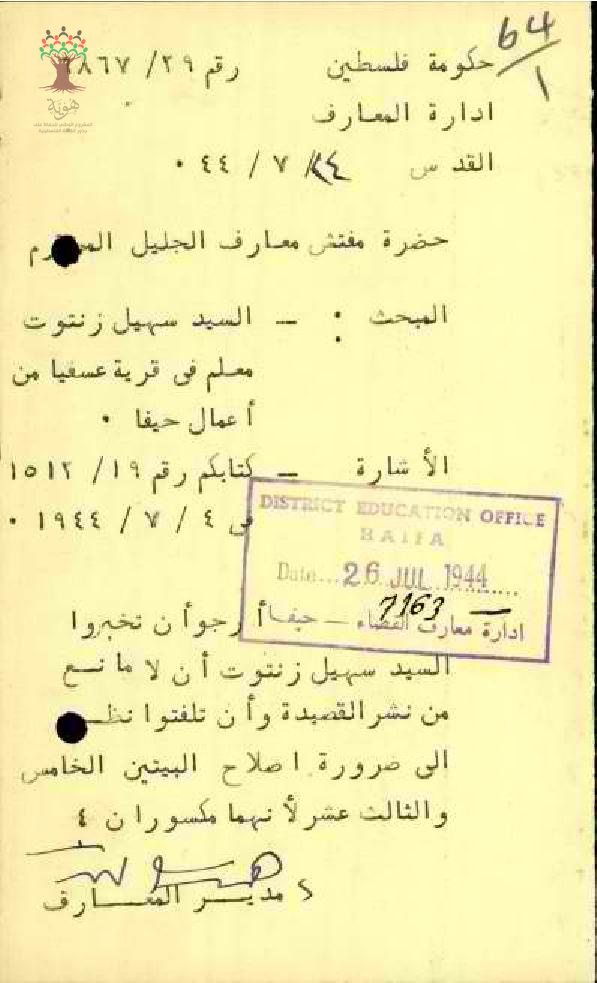 64/1
حكومة فلسطين رقم ٢٩/ ٦٨٦٧
ادارة المعارف
القدس ٢٤/ ٧ / ٤٤ ٠
هوية
حضرة مفتش معارف الجليل المحترم
المبحث : ــ السيد سهيل زنتوت
معلم فى قرية عسفيا من
أعمال حيفا ٠
الأشارة ــ كتابكم رقم ١٩/ ١٥١٢
فى ٤ / ٧ / ١٩٤٤ ٠
DISTRICT EDUCATION OFFICE
HAIFA
Date... 26 JUL 1944
7163
ادارة معارف القضاء ــ حيفا
أرجوأن تخبروا
السيد سهيل زنتوت أن لا مانـع
من نشرالقصيدة وأن تلفتوا نظـ
الى ضرورة اصلاح البيتين الخامس
والثالث عشرلأنهما مكسوران ٤
مديـر المعـــارف